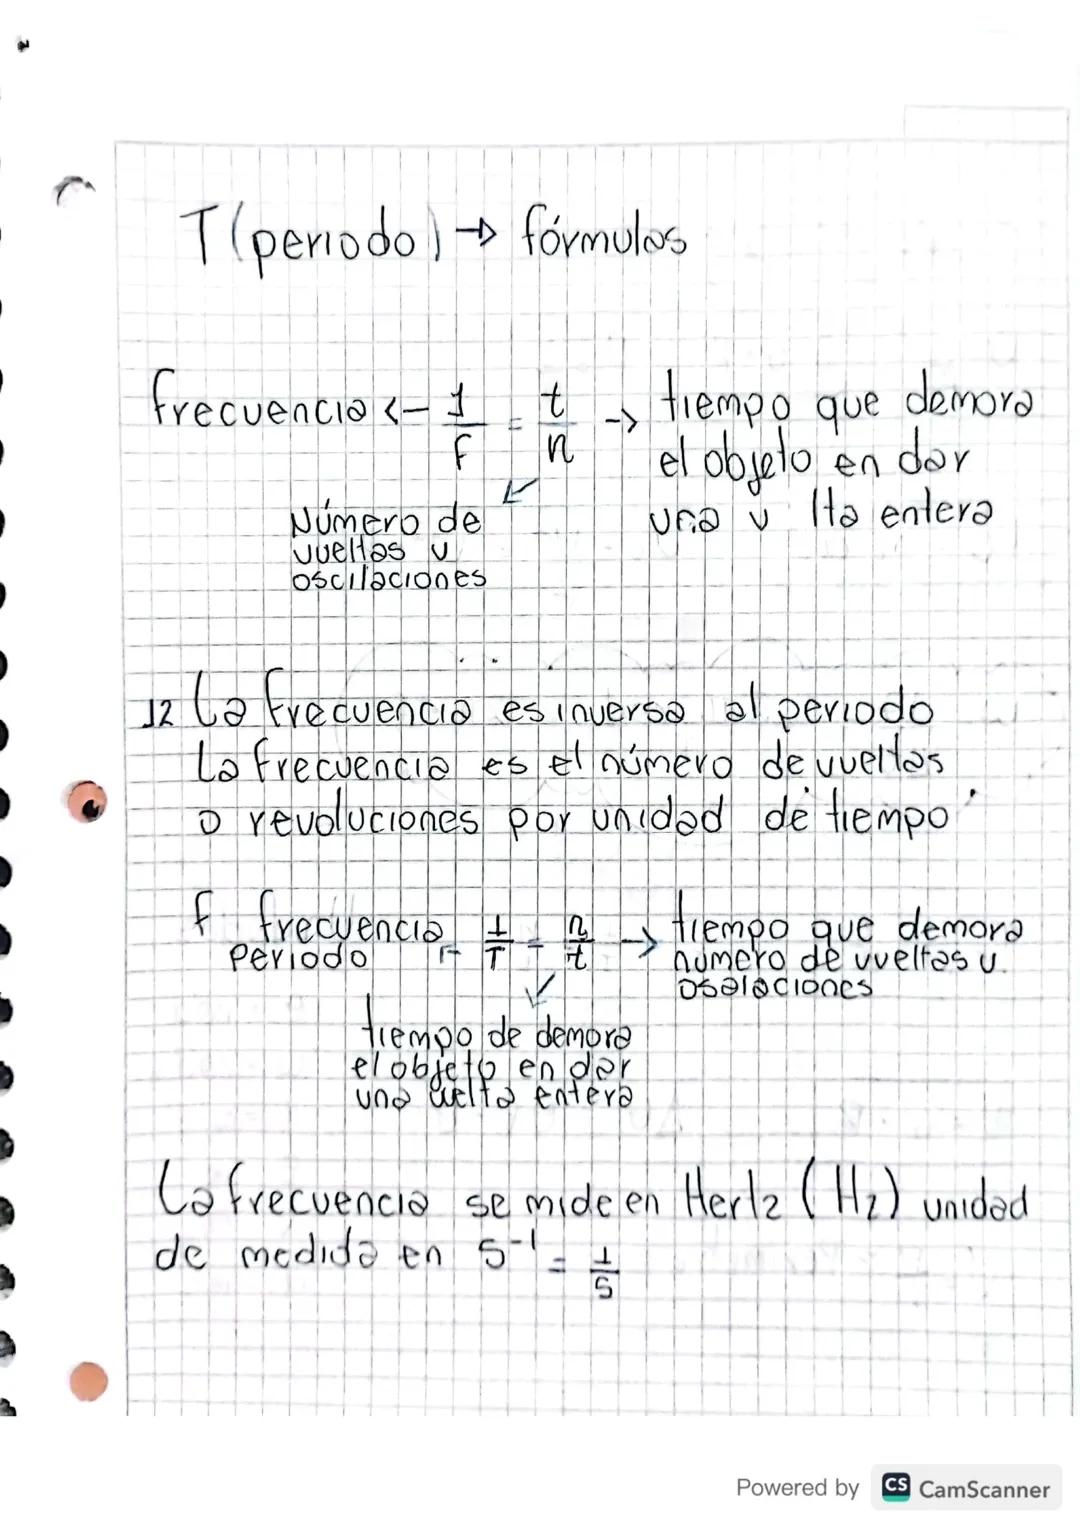 T (periodo) → fórmulas
frecuencia <- 1/f = t/n -> tiempo que demora
el objeto en dar
una v lta entera
Número de
vueltas u
oscilaciones
12 La frecuencia es inversa al periodo
La frecuencia es el número de vueltas
o revoluciones por unidad de tiempo
f frecuencia 1/T = n/t -> tiempo que demora
periodo
número de vueltas u
oselaciones
tiempo de demora
el objeto en dar
una vuelta entera
La frecuencia se mide en Hertz (Hz) unidad
de medida en s⁻¹ = 1/s
Powered by CS CamScanner